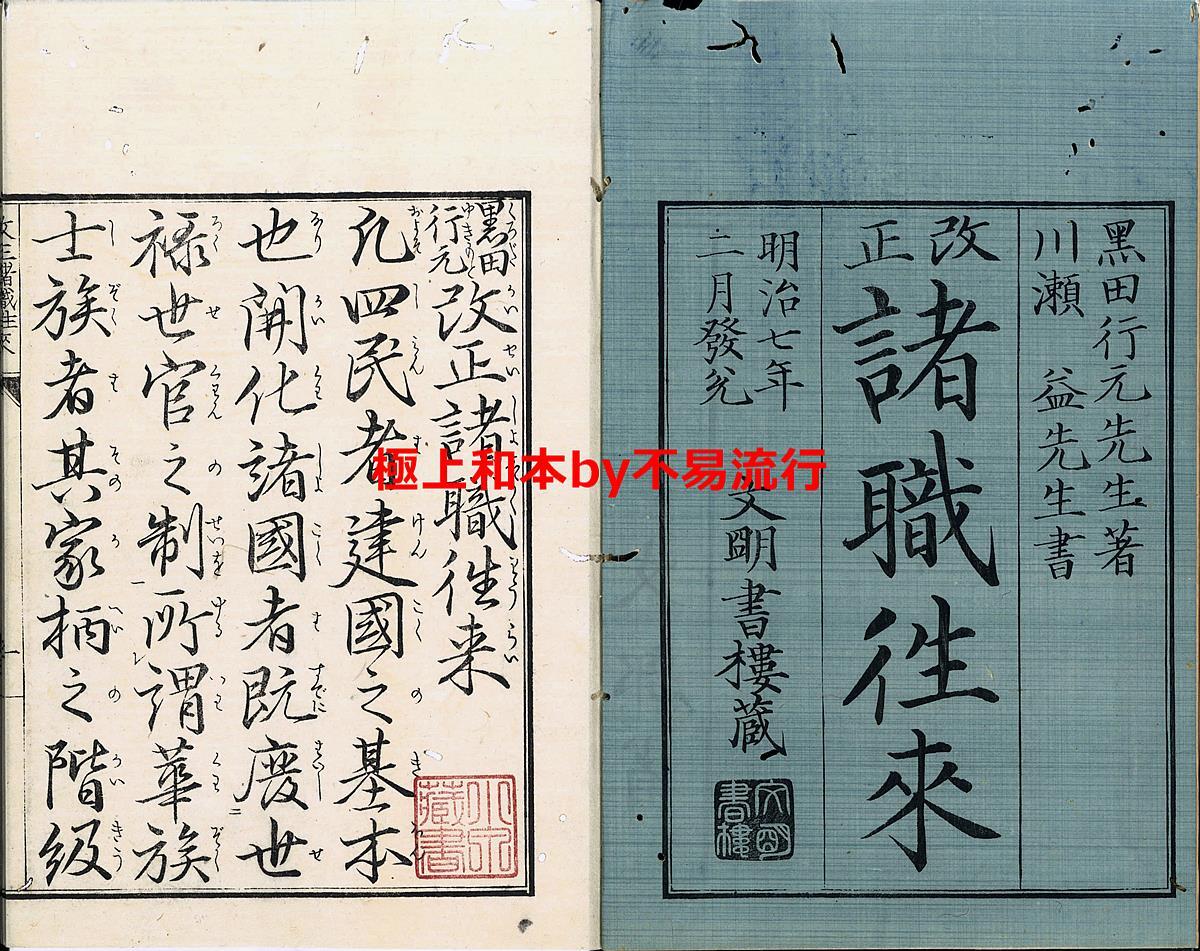 黒田行元先生著
川瀬 益先生書
改正 諸職徃來
明治七年
二月發兌
文明書樓蔵
文明書樓
黒田行元 改正諸職徃来
凡四民者建國之基本
也開化諸國者既廢世
禄世官之制所謂華族
士族者其家柄之階級
極上和本by不易流行